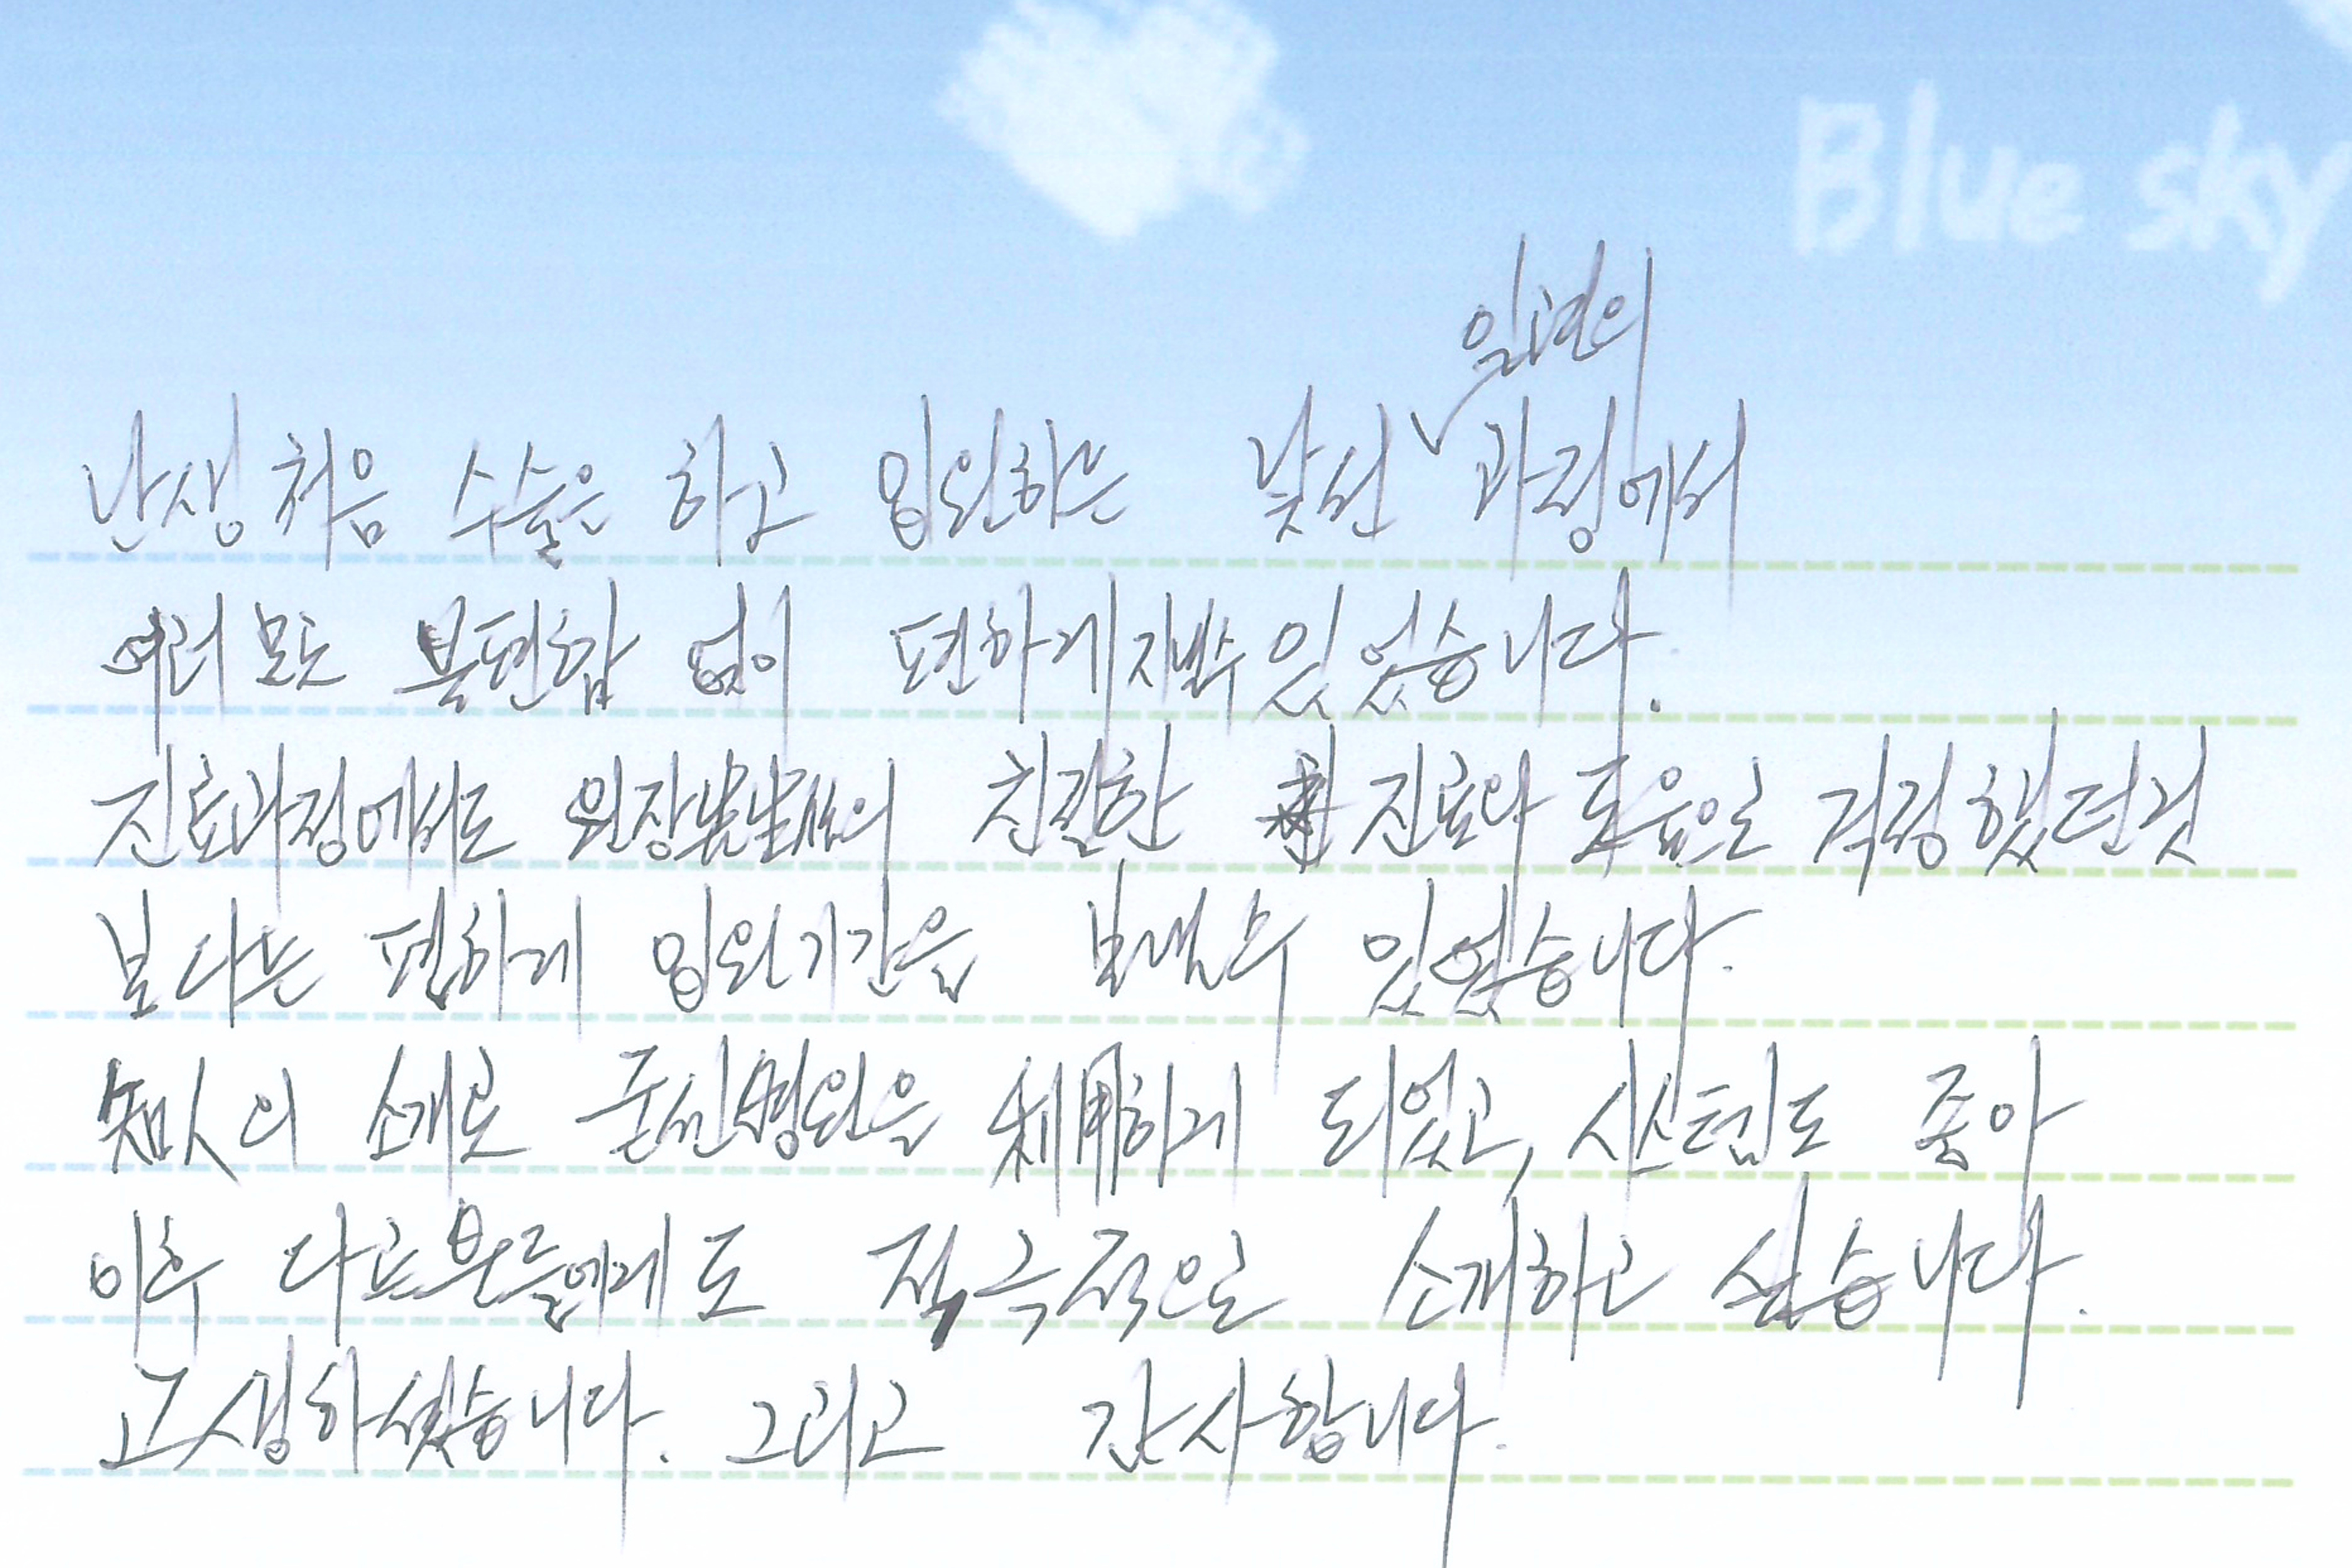 Blue sky
일련의
난생 처음 수술은 하고 입원하는 낯선 과정에서
여러모로 불편함 없이 편하게 지낼수 있었습니다.
진료과정에서도 원장先生님의 친절한 진료와 도움으로 걱정했던것
보다는 편하게 입원기간을 보낼수 있었습니다.
知人의 소개로 병원을 利用하게 되었고, 시스템도 좋아
이후 다른분들에게도 적극적으로 소개하고 싶습니다.
고생하셨습니다. 그리고 감사합니다.